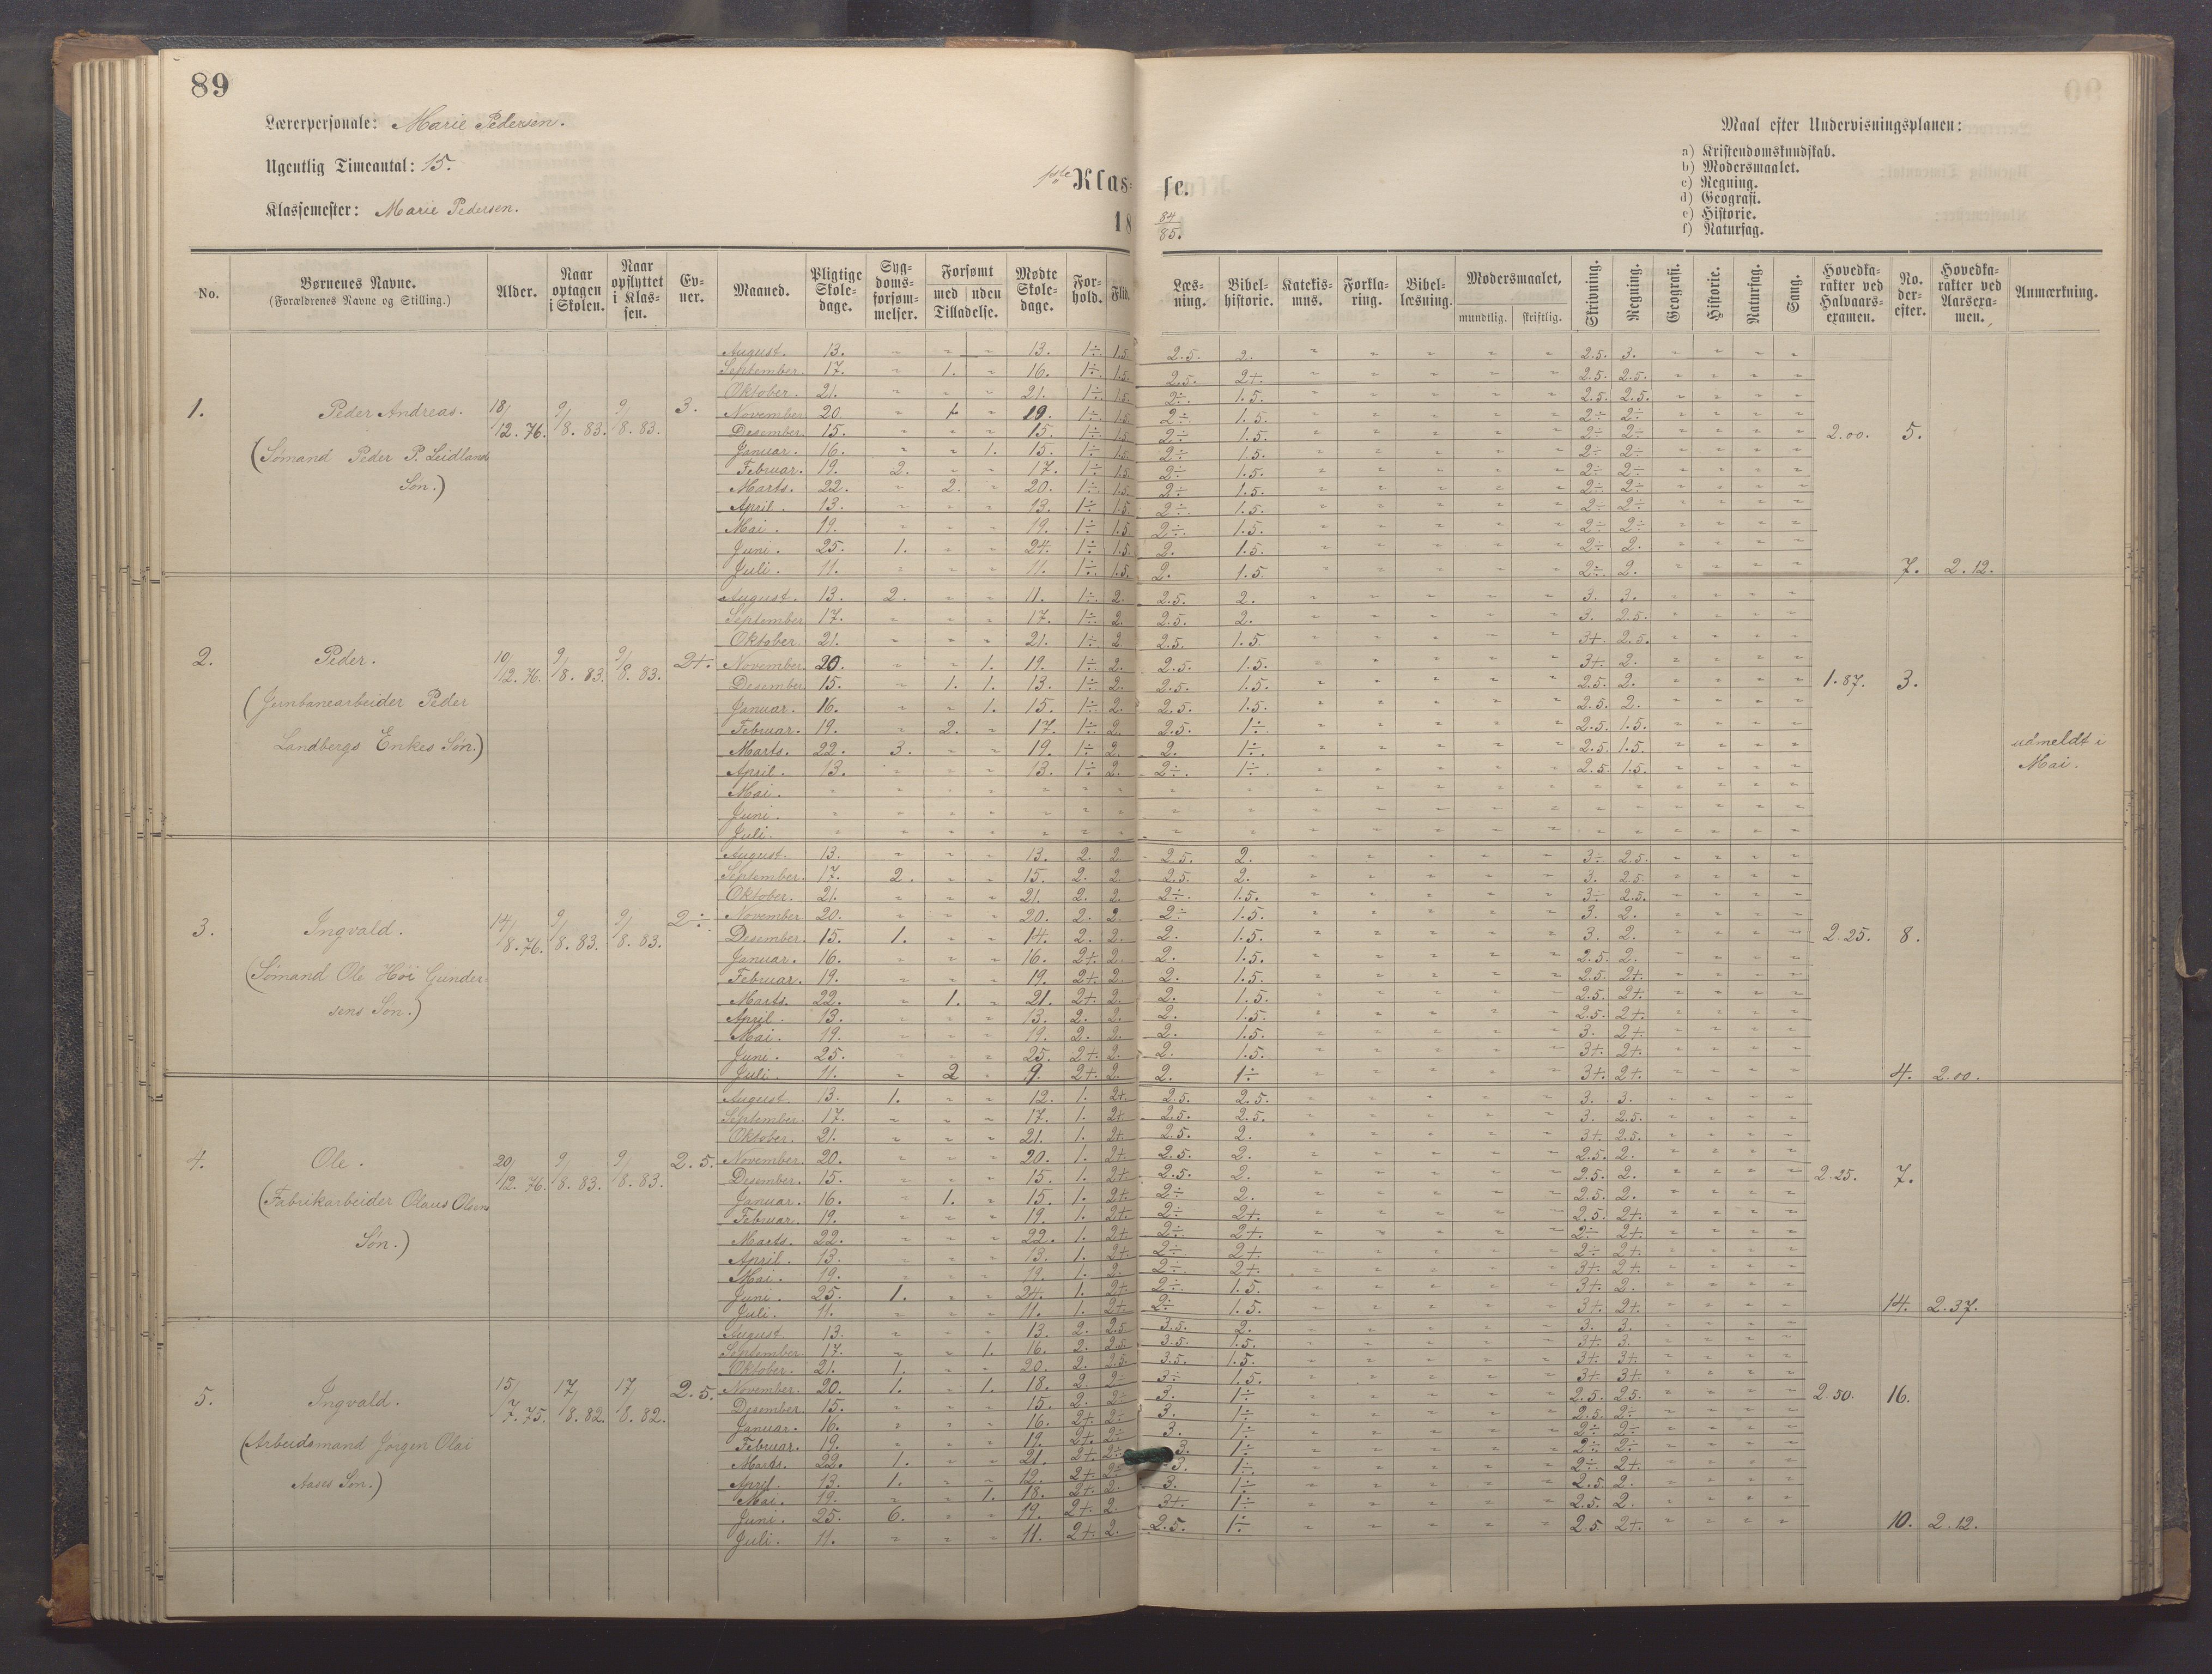 89
Lærerpersonale: Marie Pedersen.
Ugentlig Timeantal: 15.
Klassemester: Marie Pedersen.
1ste Klasse.
18 84/85.
Maal efter Undervisningsplanen:
a) Kristendomskundskab.
b) Modersmaalet.
c) Regning.
d) Geografi.
e) Historie.
f) Naturfag.
No. | Børnenes Navne. (Forældrenes Navne og Stilling.) | Alder. | Naar optagen i Skolen. | Naar opflyttet i Klassen. | Evner. | Maaned. | Pligtige Skoledage. | Sygdomsforsømmelser. | Forsømt med uden Tilladelse. | Mødte Skoledage. | Forhold. | Flid. | Læsning. | Bibelhistorie. | Katekismus. | Forklaring. | Bibellæsning. | Modersmaalet, mundtlig. skriftlig. | Skrivning. | Regning. | Geografi. | Historie. | Naturfag. | Sang. | Hovedkarakter ved Halvaarsexamen. | No. derefter. | Hovedkarakter ved Aarsexamen. | Anmærkning.
1. Peder Andreas. 18/12. 76. 9/8. 83. 9/8. 83. 3. 2.00. 5.
(Sømand Peder P. Leidland
Søn.)
August. 13. - - - 13. 1÷. 1.5. 2.5. 2. 2.5. 3.
September. 17. - 1. - 16. 1÷. 1.5. 2.5. 2+. 2.5. 2.5.
Oktober. 21. - - - 21. 1÷. 1.5. 2÷. 1.5. 2.5. 2.5.
November 20. - 1. - 19. 1÷. 1.5. 2÷. 1.5. 2÷ 2÷
Desember. 15. - - - 15. 1÷. 1.5. 2÷ 1.5. 2÷ 2÷
Januar. 16. - - 1. 15. 1÷. 1.5. 2÷ 1.5. 2÷ 2÷
Februar. 19. 2. - - 17. 1÷ 1.5. 2÷ 1.5. 2÷ 2÷
Marts. 22. - 2. - 20. 1÷ 1.5. 2÷ 1.5. 2÷ 2÷
April. 13. - - - 13. 1÷ 1.5. 2÷. 1.5. 2÷ 2÷
Mai. 19. - - - 19. 1÷ 1.5 2÷. 1.5. 2÷ 2÷
Juni. 25. 1. - - 24. 1÷ 1.5. 2. 1.5. 2÷ 2.
Juli. 11. - - - 11. 1÷. 1.5. 2. 1.5. 2÷. 2. 7. 2.12.
2. Peder. 10/12. 76. 9/8. 83. 9/8. 83. 2+. 1.87. 3.
(Jernbanearbeider Peder
Landbergs Enkes Søn.)
udmeldt i
Mai.
August. 13. 2. - - 11. 1÷. 2. 2.5. 2. 3. 3.
September 17. - - - 17. 1÷. 2. 2.5. 2. 3. 2.5.
Oktober. 21. - - - 21. 1÷ 2. 2.5. 1.5 3+. 2.5.
November. 20. - - 1. 19. 1÷ 2. 2.5. 1.5. 3+. 2.
Desember. 15. - 1. 1. 13. 1÷ 2. 2.5. 1.5. 2.5. 2.
Januar. 16. - - 1. 15. 1÷ 2. 2.5. 1.5. 2.5. 2.
Februar. 19. - 2. - 17. 1÷ 2. 2.5 1÷ 2.5. 1.5.
Marts. 22. 3. - - 19. 1÷ 2. 2. 1÷. 2.5. 1.5.
April. 13. - - - 13. 1÷ 2. 2÷. 1÷. 2.5 1.5.
Mai. - - - - -
Juni. - - - - -
Juli. - - - - -
3. Ingvald. 14/8. 76. 9/8. 83. 9/8. 83. 2÷. 2.25. 8.
(Sømand Ole Höi Gunder
sens Søn.)
August. 13. - - - 13. 2. 2. 2.5. 2. 3÷ 2.5.
September. 17. 2. - - 15. 2. 2. 2.5. 2. 3. 2.5
Oktober. 21. - - - 21. 2. 2. 2÷. 1.5. 3÷ 2.5.
November 20. - - - 20. 2. 2. 2÷ 1.5. 3. 2.
Desember. 15. 1. - - 14. 2. 2. 2. 1.5. 3. 2.
Januar. 16. - - - 16. 2+. 2. 2. 1.5. 2.5. 2.
Februar. 19. - - - 19. 2+. 2. 2. 1.5. 2.5. 2+.
Marts. 22. - 1. - 21. 2+. 2. 2. 1.5. 2.5. 2+.
April. 13. - - - 13. 2. 2. 2. 1.5. 2.5. 2+.
Mai. 19. - - - 19. 2. 2. 2. 1.5. 3. 2+.
Juni. 25. - - - 25. 2+. 2. 2. 1.5. 3+. 2+.
Juli. 11. - 2 - 9. 2+. 2. 2. 1÷ 3+. 2+. 4. 2.00.
4. Ole. 20/12. 76. 9/8. 83. 9/8. 83. 2.5. 2.25. 7.
(Fabrikarbeider Olaus Olsens
Søn.)
August. 13. 1. - - 12. 1. 2+. 2.5. 2.5. 3. 3.
September. 17. - - - 17. 1. 2+ 2.5. 2.5. 3. 2.5.
Oktober. 21. - - - 21. 1. 2+. 2.5. 2. 3+. 2.5.
November. 20. - - - 20. 1. 2+. 2.5. 2. 2.5. 2.
Desember. 15. - - - 15. 1. 2+ 2.5. 2. 2.5. 2.
Januar. 16. - 1. - 15. 1. 2+. 2÷ 2. 2.5. 2.
Februar. 19. - - - 19. 1. 2+. 2÷ 2+. 2.5. 2+.
Marts. 22. - - - 22. 1. 2+ 2÷. 2+. 2÷ 2+.
April. 13. - - - 13. 1. 2+. 2÷ 2+. 2÷ 2+.
Mai. 19. - - - 19. 1. 2. 2÷. 2+. 3+. 2+.
Juni. 25. 1. - - 24. 1. 2+ 2÷. 1.5. 3+. 2.
Juli. 11. - - - 11. 1. 2+. 2÷ 1.5. 3+. 2+. 14. 2.37.
5. Ingvald. 15/7. 75. 17/8. 82. 17/8. 82. 2.5. 2.50. 16.
(Arbeidsmand Jörgen Olai
Aases Søn.)
August. 13. - - - 13. 2. 2.5 3.5. 2. 3. 3.
September. 17. - - 1. 16. 2. 2.5. 3.5. 1.5. 3+. 3.
Oktober. 21. 1. - - 20. 2. 2.5. 3.5. 1.5. 3+. 3+.
November. 20. 1. - 1. 18. 2. 2÷ 3÷ 1.5. 3+ 3+.
Desember. 15. - - - 15. 2. 2÷ 3. 1÷ 2.5. 2.5.
Januar. 16. - - - 16. 2+. 2÷ 3. 1÷ 2.5. 2÷
Februar. 19. - - - 19. 2+. 2÷ 3. 1÷ 2÷ 2÷
Marts. 22. 1. - - 21. 2+. 2÷ 3. 1÷ 2÷ 2÷
April. 13. 1. - - 12. 2+. 2÷ 3. 1÷. 2÷. 2+.
Mai. 19. - - 1. 18. 2+. 2. 3. 1÷ 2.5. 2.
Juni. 25. 6. - - 19. 2+. 2. 3+. 1÷ 2.5. 2.
Juli. 11. - - - 11. 2+. 2. 2.5. 1÷ 2.5. 2+. 10. 2.12.